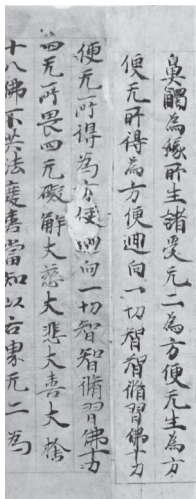 鼻觸為緣所生諸受无二為方便无生為方
便无所得為方便迴向一切智智脩習佛十力
便无所得為方便迴向一切智智脩習佛十力
四无所畏四无礙解大慈大悲大喜大捨
十八佛不共法慶喜當知以舌界无二為